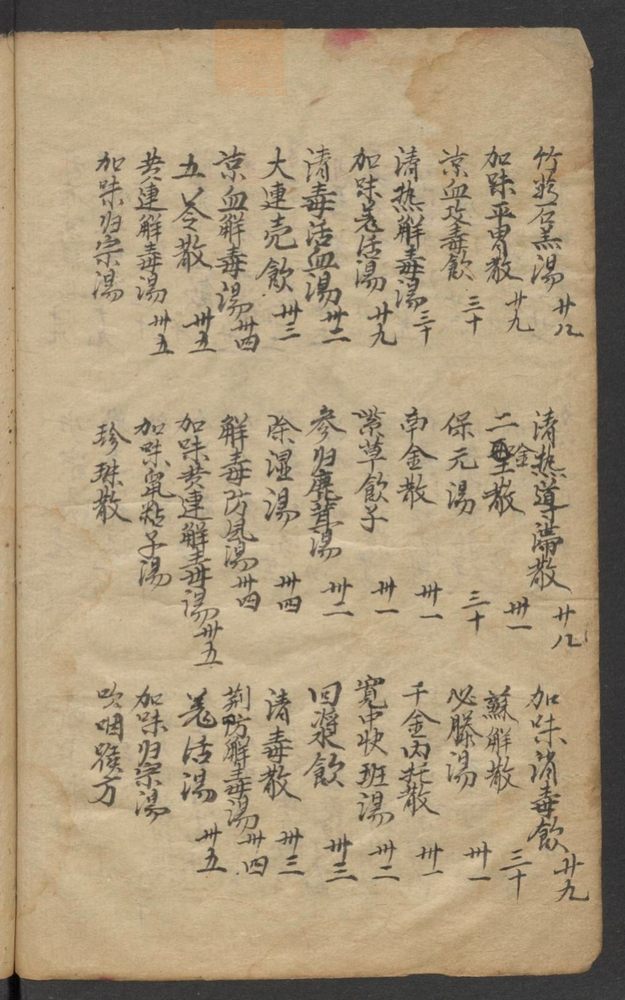 竹葉石羔湯 廿八
清熱導滯散 廿八
加味消毒飲 廿九
加味平胃散 廿九
二聖金散 卅一
蘇解散 三十
涼血攻毒飲 三十
保元湯 三十
必勝湯 卅一
清熱解毒湯 三十
南金散 卅一
千金內托散 卅一
加味羌活湯 廿九
紫草飲子 卅一
寬中快班湯 卅二
清毒活血湯 卅二
參归鹿茸湯 卅二
回漿飲 卅三
大連壳飲 卅三
除湿湯 卅四
清毒散 卅三
涼血觧毒湯 卅四
觧毒防風湯 卅四
荊防觧毒湯 卅四
五苓散 卅五
加味黄連觧毒湯 卅五
羌活湯 卅五
黄連觧毒湯 卅五
加味鼠粘子湯
加味归宗湯
加味归宗湯
珍珠散
吹咽喉方